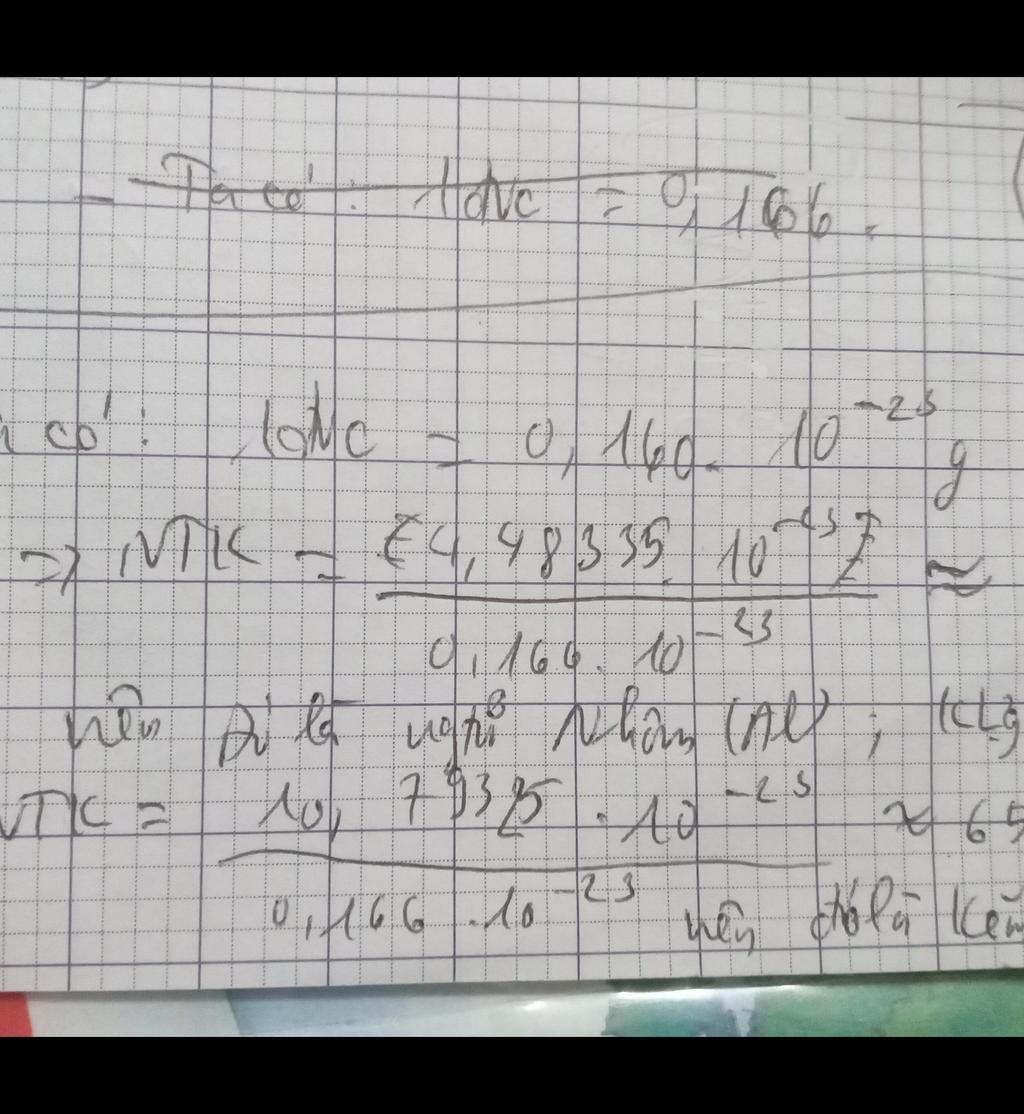 - Ta có: 1đvC = 0,166.
có: 1đvC = 0,160. 10⁻²³ g
=> NTK = 4,48335 10⁻²³ ≈
0,166. 10⁻²³
nên Đó là ngtố Nhôm (Al); KLg
NTK = 10, 79325 . 10⁻²³ ≈ 65
0,166 .10⁻²³ nên đó là Kẽm